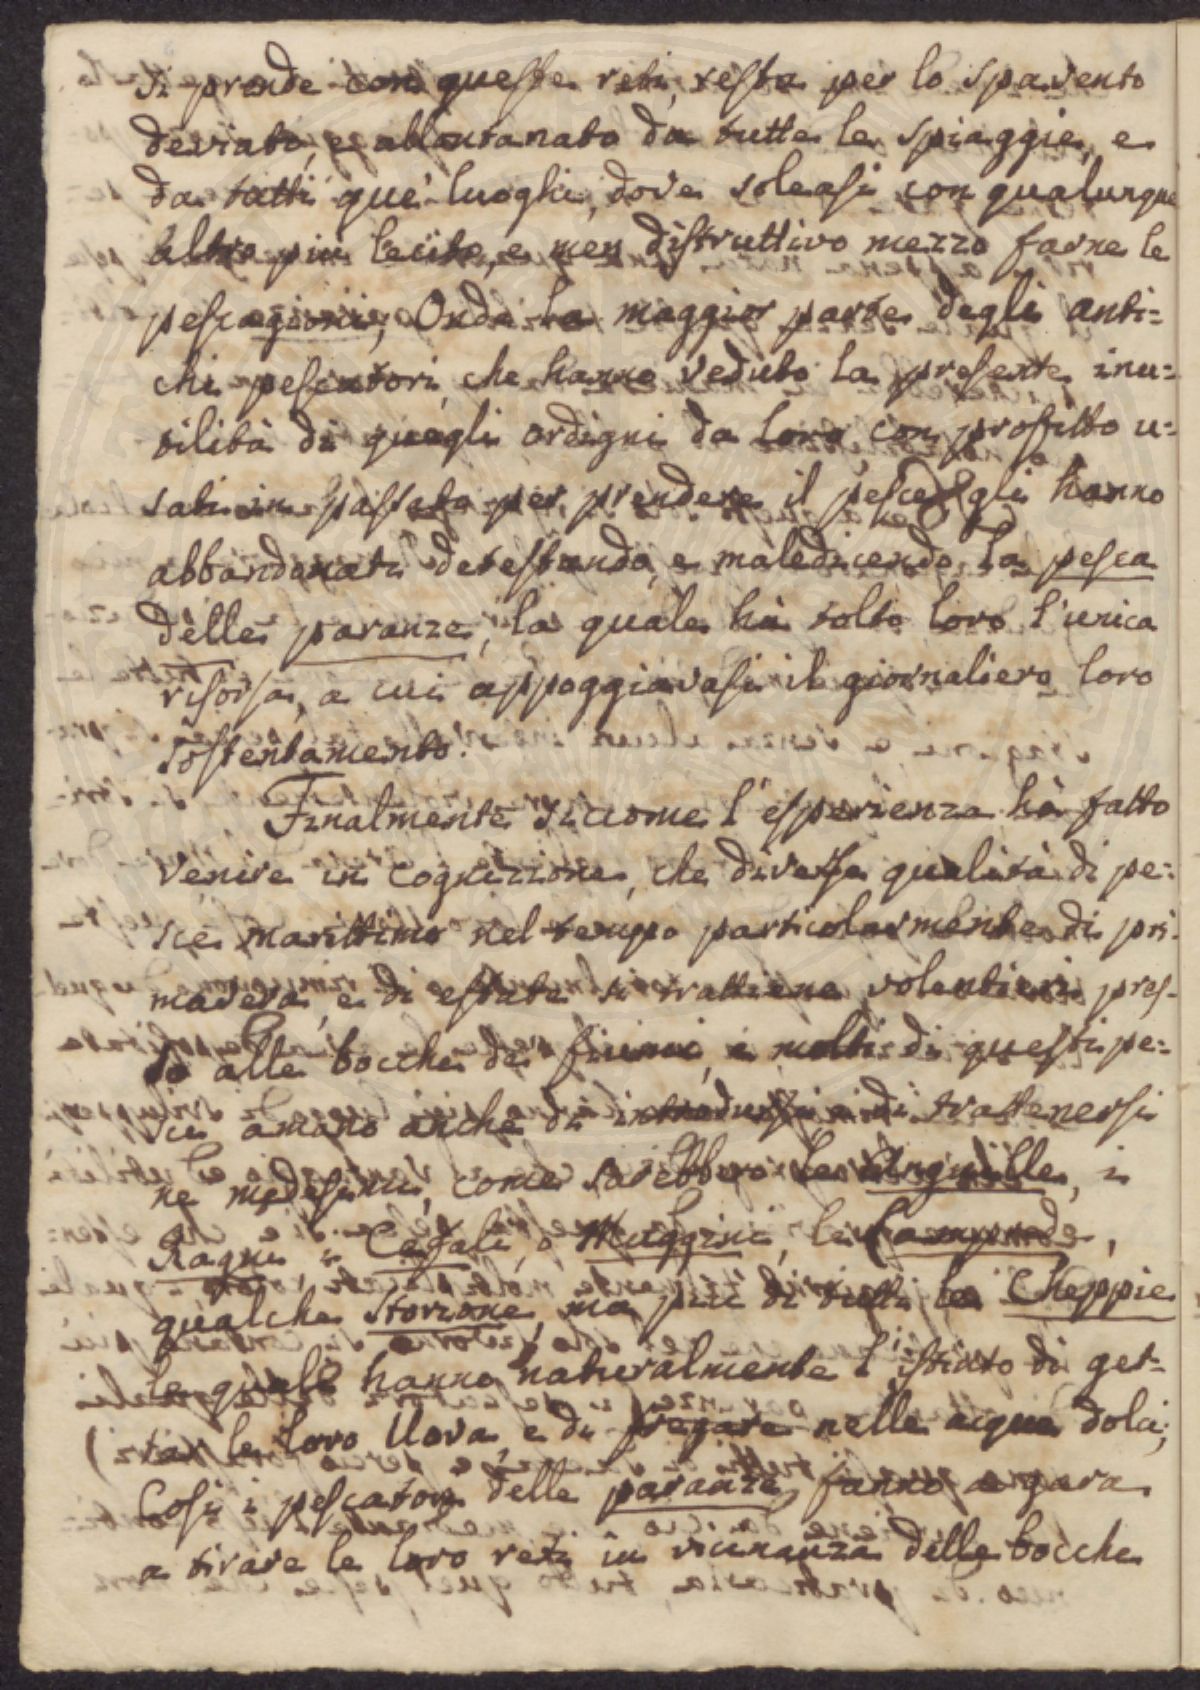 si prende con queste reti, resta per lo spavento
deviato, e allontanato da tutte le spiaggie, e
da tutti que' luoghi, dove soleasi con qualunque
altro più lecito, e men distruttivo mezzo farne le
pescagioni; Onde la maggior parte degli anti=
chi pescatori, che hanno veduto la presente inu=
tilità di quegli ordigni da loro con profitto u=
sati in passato per prendere il pesce gli hanno
abbandonati detestando, e maledicendo la pesca
delle paranze, la quale hà tolto loro l'unica
risorsa, a cui appoggiavasi il giornaliero loro
sostentamento.
Finalmente siccome l'esperienza hà fatto
venire in cognizione, che diverse qualità di pe=
sce marittimo nel tempo particolarmente di pri=
mavera, e di estate si trattiene volentieri pres=
so alle bocche de fiumi, e molti di questi pe=
sci amano anche di introdursi, e di trattenersi
ne medesimi, come sarebbero le Anguille, i
Ragni i Cefali, o Muggini, le Lamprede,
qualche storione, ma più di tutti le Cheppie
le quali hanno naturalmente l'istinto di get=
tar le loro Uova, e di fregare nelle acque dolci;
Così i pescatori delle paranze fanno a gara
a tirare le loro reti in vicinanza delle bocche